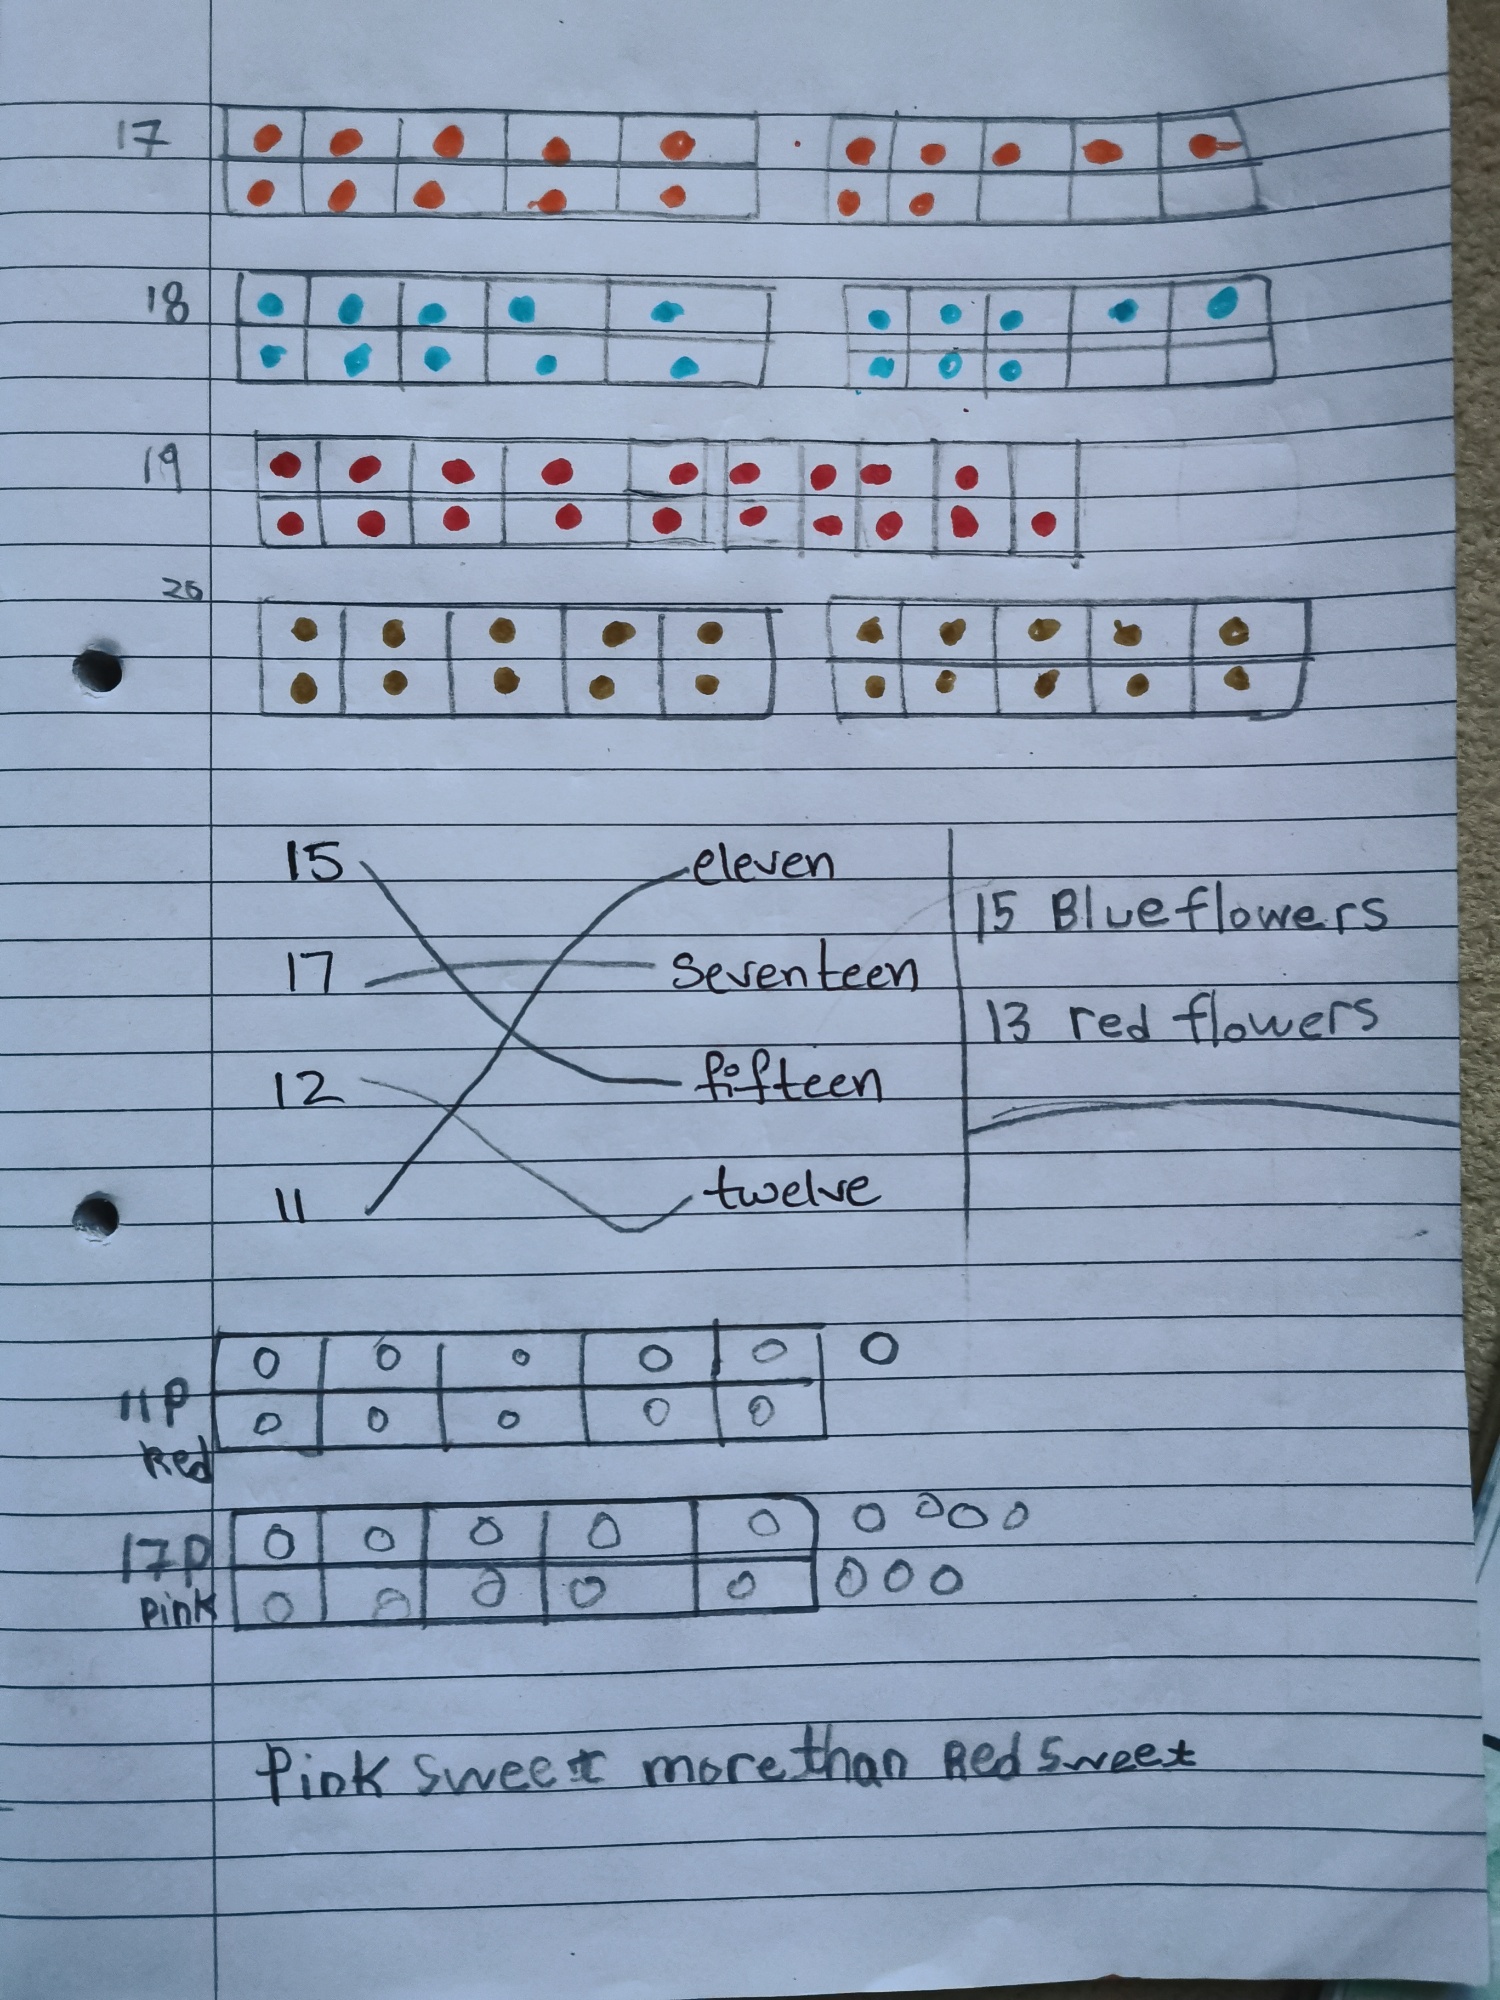 17
18
19
20
15 eleven
17 seventeen
12 fifteen
11 twelve
15 Blue flowers
13 red flowers
11 P
Red
17 P
Pink
Pink sweet more than Red Sweet